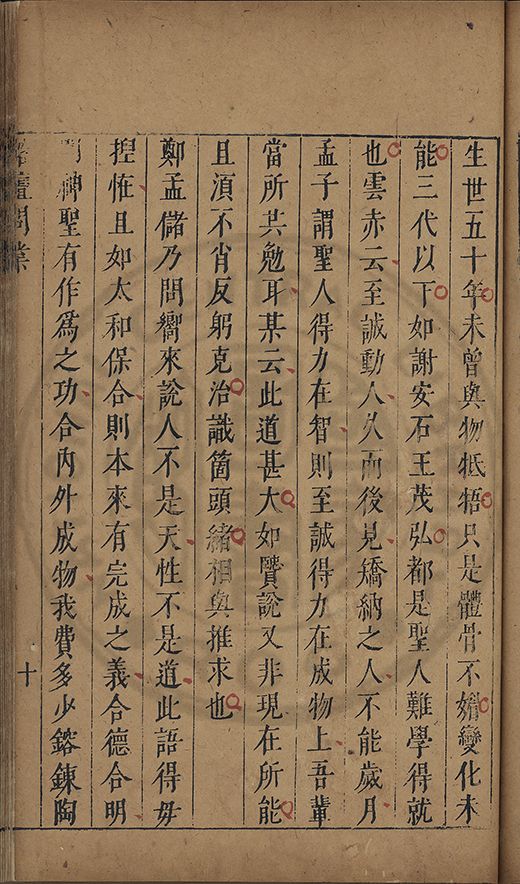 生世五十年未曾與物牴牾只是體骨不媚變化未
能三代以下如謝安石王茂弘都是聖人難學得就
也雲赤云至誠動人久而後見矯納之人不能歲月
孟子謂聖人得力在智則至誠得力在成物上吾輩
當所共勉耳某云此道甚大如贋說又非現在所能
且須不肖反躬克治識箇頭緒相與推求也
鄭孟儲乃問嚮來說人不是天性不是道此語得毋
揑恠且如太和保合則本來有完成之義合德合明
神聖有作為之功合內外成物我費多少鎔鍊陶
壇問業
十